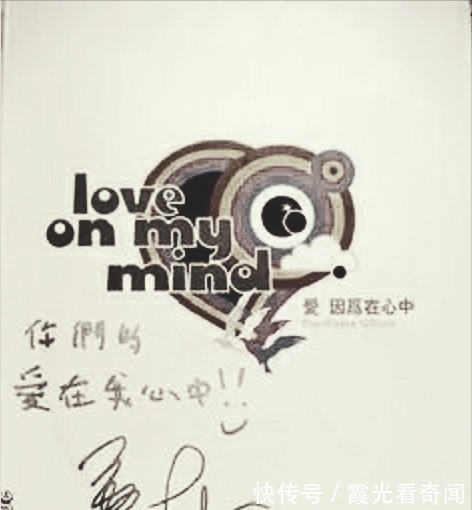 love
on my
mind
愛 因爲在心中
你們的
愛在我心中!!
快传号／霞光看奇闻